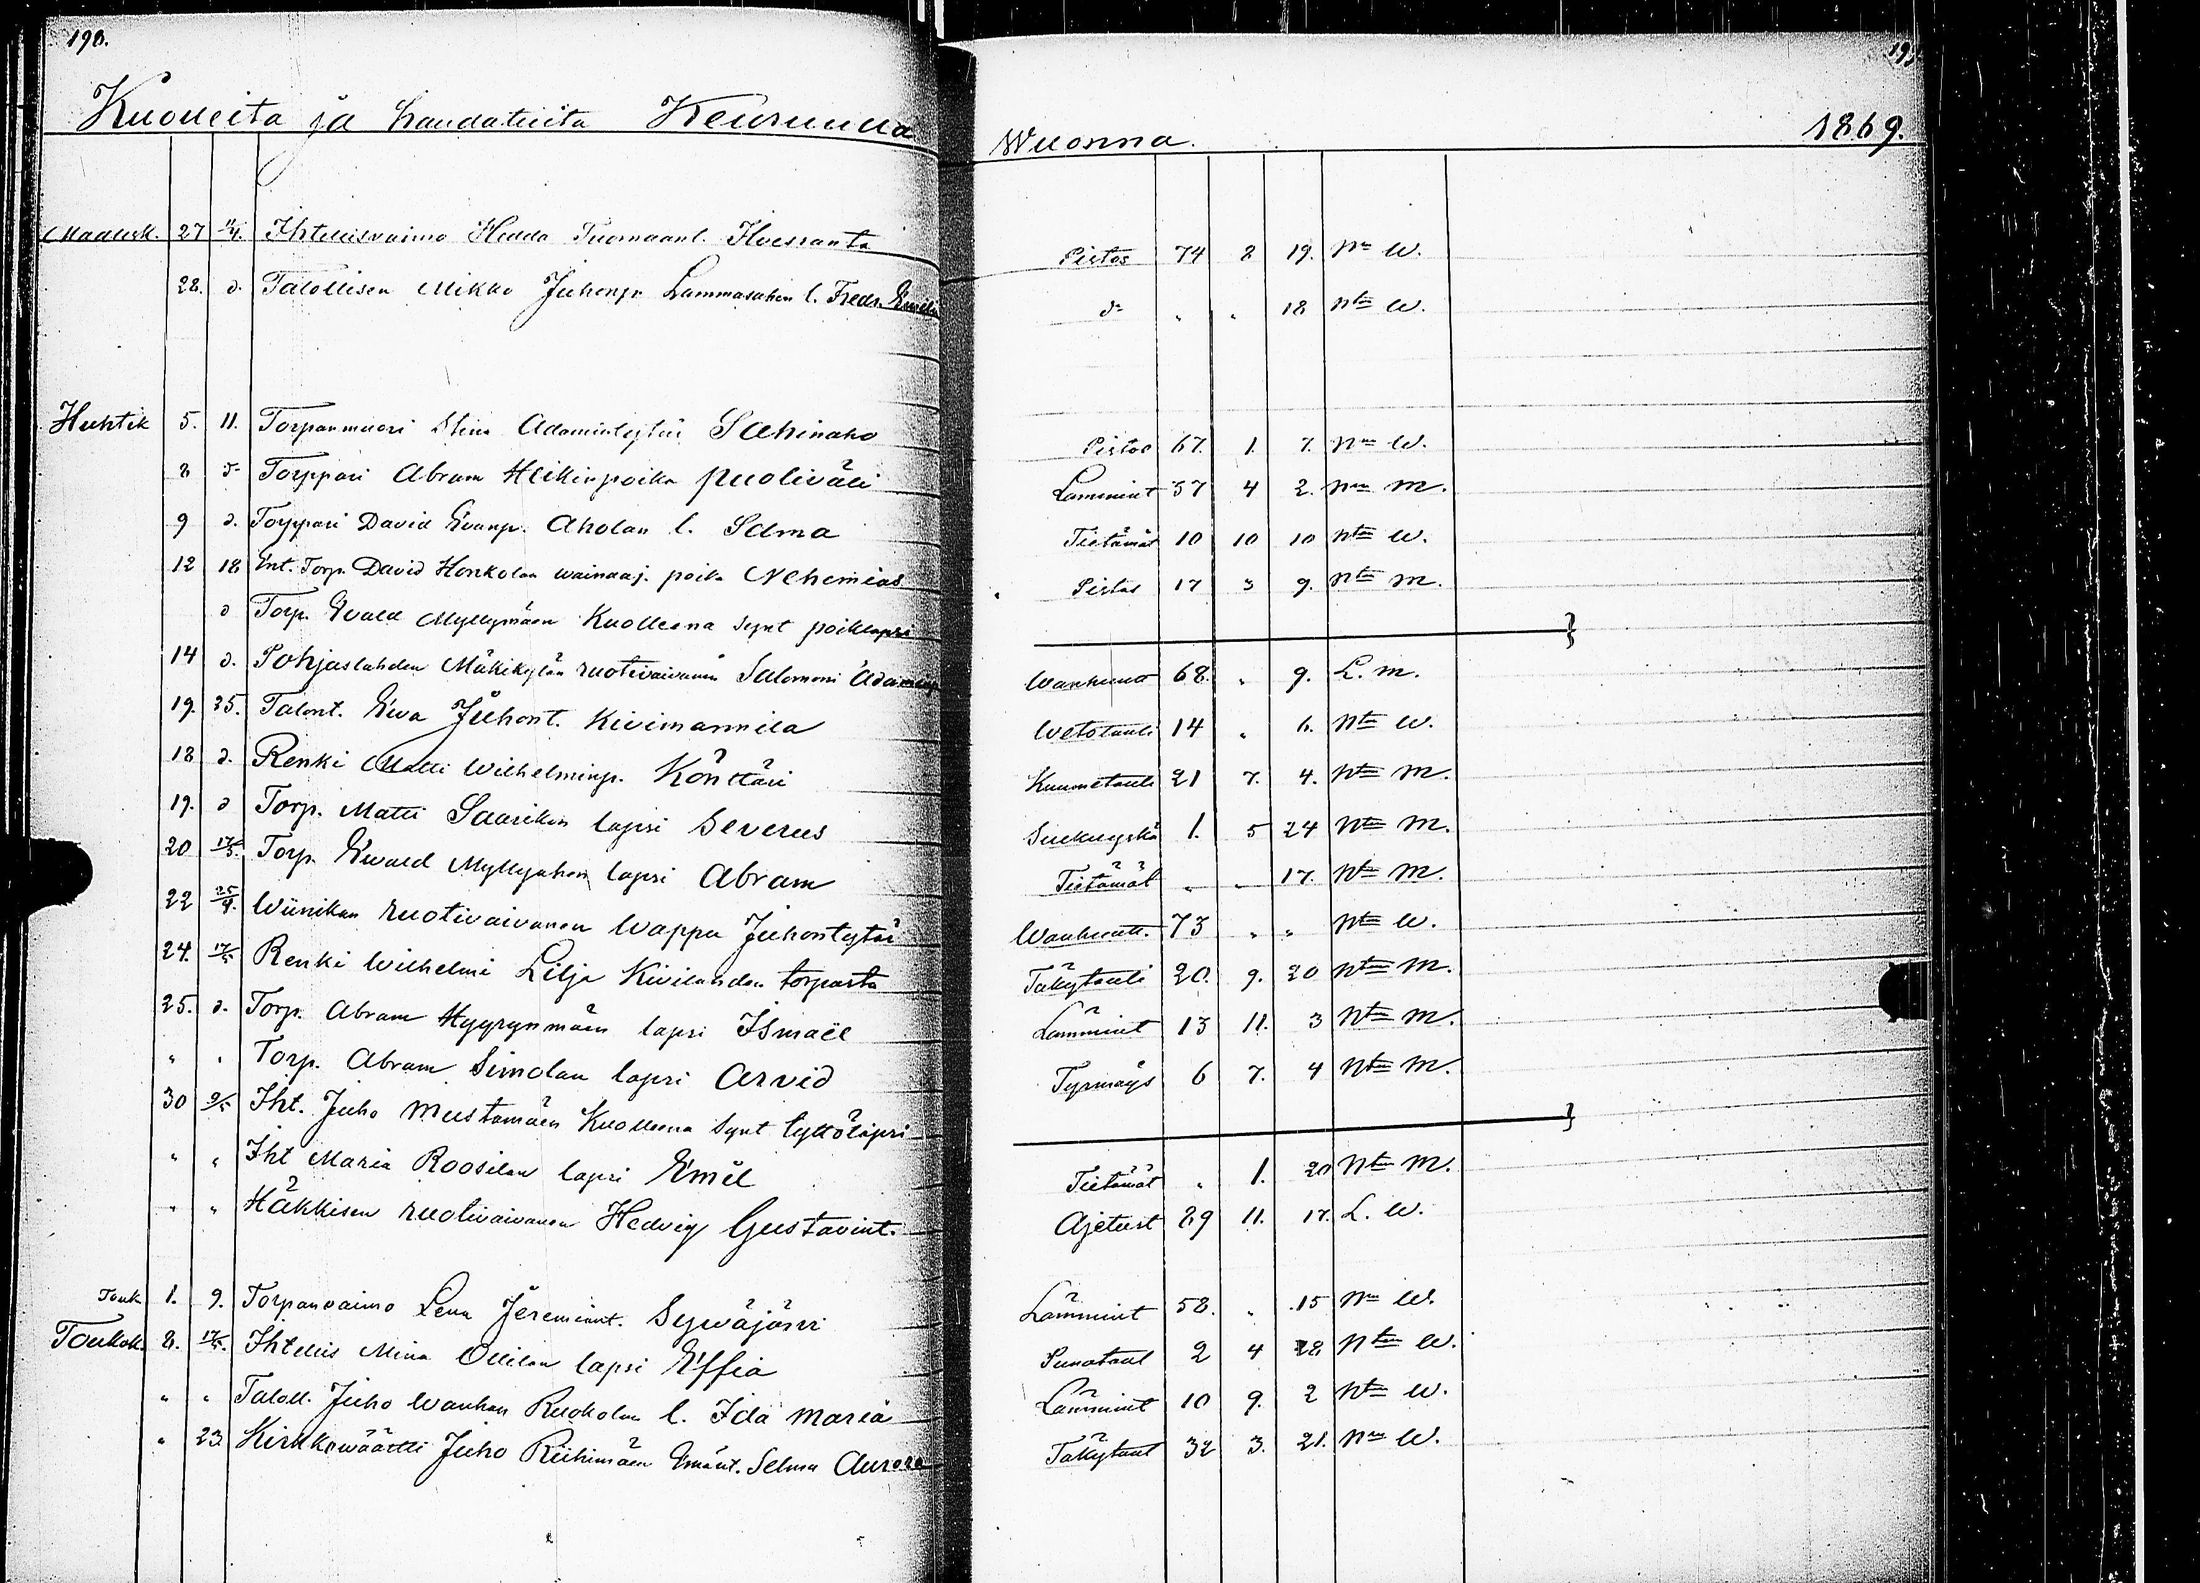 190.
Kuolleita ja haudatuita Keuruulla Wuonna 1869.
Maalisk. 27 11/4. Ihtellisvaimo Hedda Tuomaant. Pistos 74 8 19. Nn W.
28. d. Talollisen Mikko Juhonp. Lammasahon l. Fredr. d- " " 18 Ntön W.
Huhtik 5. 11. Torpanmuori Stina Adamintytär Sahinaho Pistos 67. 1. 7. Nn W.
8 d- Torppari Abram Heikinpoika Puoliväli Lammint 57 4 2. Nn M.
9 d. Torppari David Evanp. Aholan l. Selma Tietämät 10 10 10 Ntön W.
12 18 Ent. Torp. David Honkolan wainaaj. poika Nehemias Pistos 17 3 9. Ntön M.
d Torp. Evald Myllymäen Kuolleena synt poiklapsi
14 d. Pohjaslahden Mäkikylän ruotivaivanen Salomoni Adaminp Wanhuutt 68. " 9. L. M.
19. 25. Talont. Eva Juhont. Kivimannila Wetotauti 14 " 6. Ntön W.
18 d. Renki Matti Wilhelminp. Könttäri Kuumetauti 21 7. 4. Ntön M.
19. d Torp. Matti Saarikon lapsi Severus 1. 5 24 Ntön M.
20 17/5. Torp. Ewald Myllyahon lapsi Abram Tietämät " " 17. Ntön M.
22 25/4. Wiinikan ruotivaivanen Wappu Juhontytär Wanhuutt. 73 " " Ntön W.
24. 17/5 Renki Wilhelmi Lilja Kivilahden torpasta Täkytauti 20. 9. 20 Ntön M.
25. d. Torp. Abram Hyyrynmäen lapsi Ismaël Lämmint 13 11. 3 Ntön M.
" " Torp. Abram Simolan lapsi Arvid 6 7. 4 Ntön M.
30 9/5 Iht. Juho Mustamäen Kuolleena synt tyttölapsi
" " Iht Maria Roosilan lapsi Emil Tietämät " 1. 20 Ntön M.
" " Häkkisen ruotivaivanen Hedvig Gustavint. Ajetust 89 11. 17. L. W.
Touk 1. 9. Torpanvaimo Lena Jeremiant. Sywäjärvi Lämmint 58. " 15 Nn W.
Toukok. 8. 17/5. Ihtellis Mina Ollilan lapsi Effia Punataut 2 4 28 Ntön W.
" " Taloll. Juho Wanhan Ruokolan l. Ida Maria Lämmint 10 9. 2 Ntön W.
" 23. Kirkkowäärtti Juho Riihimäen Emänt. Selma Aurora Täkytaut 32 3. 21. Nn W.